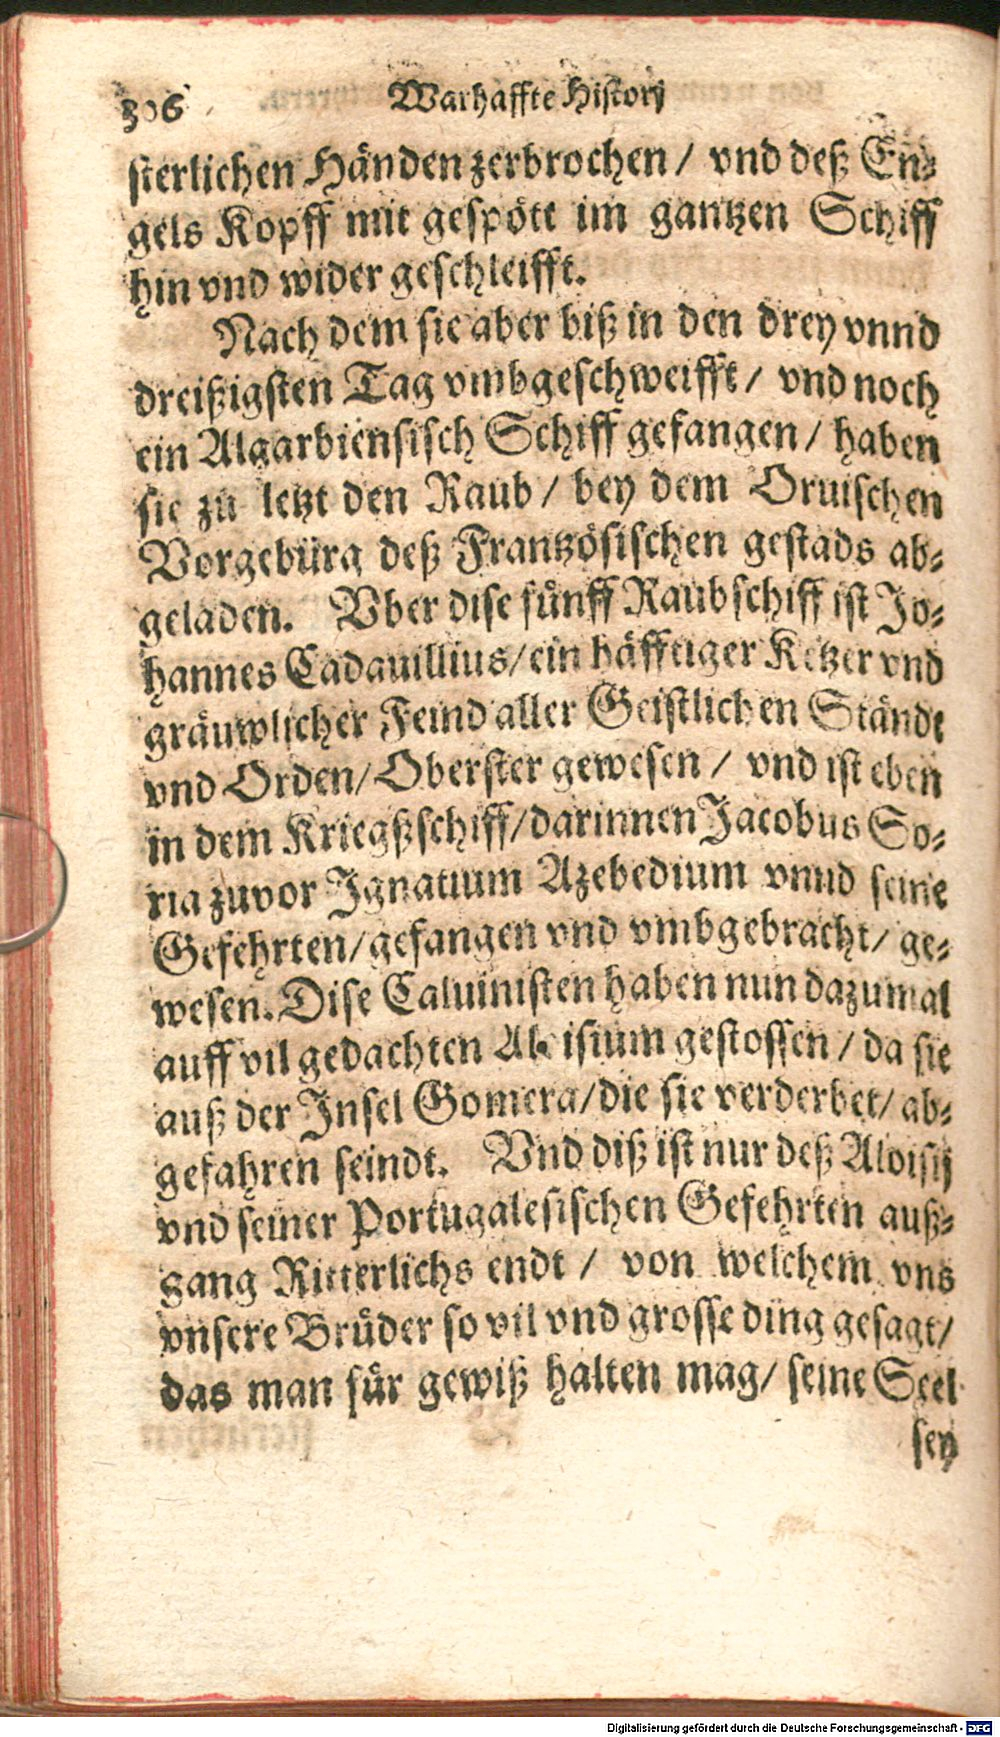 306 Warhaffte History
sterlichen Händen zerbrochen / vnd deß En⸗
gels Kopff mit gespött im gantzen Schiff
hin vnd wider geschleifft.
Nach dem sie aber biß in den drey vnnd
dreißigsten Tag vmbgeschweifft / vnd noch
ein Algarbiensisch Schiff gefangen / haben
sie zu letzt den Raub / bey dem Oruischen
Vorgebürg deß Frantzösischen gestads ab⸗
geladen. Vber dise fünff Raubschiff ist Jo⸗
hannes Cadauillius / ein häfftiger Ketzer vnd
gräuwlicher Feind aller Geistlichen Ständt
vnd Orden / Oberster gewesen / vnd ist eben
in dem Kriegßschiff / darinnen Jacobus So⸗
ria zuvor Ignatium Azebedium vnnd seine
Gefehrten / gefangen vnd vmbgebracht / ge⸗
wesen. Dise Caluinisten haben nun dazumal
auff vil gedachten Aloisium gestossen / da sie
auß der Insel Gomera / die sie verderbet / ab⸗
gefahren seindt. Vnd diß ist nur deß Aloisij
vnd seiner Portugalesischen Gefehrten auß⸗
gang Ritterlichs endt / von welchem vns
vnsere Brüder so vil vnd grosse ding gesagt /
das man für gewiß halten mag / seine Seel
sey
Digitalisierung gefördert durch die Deutsche Forschungsgemeinschaft - DFG